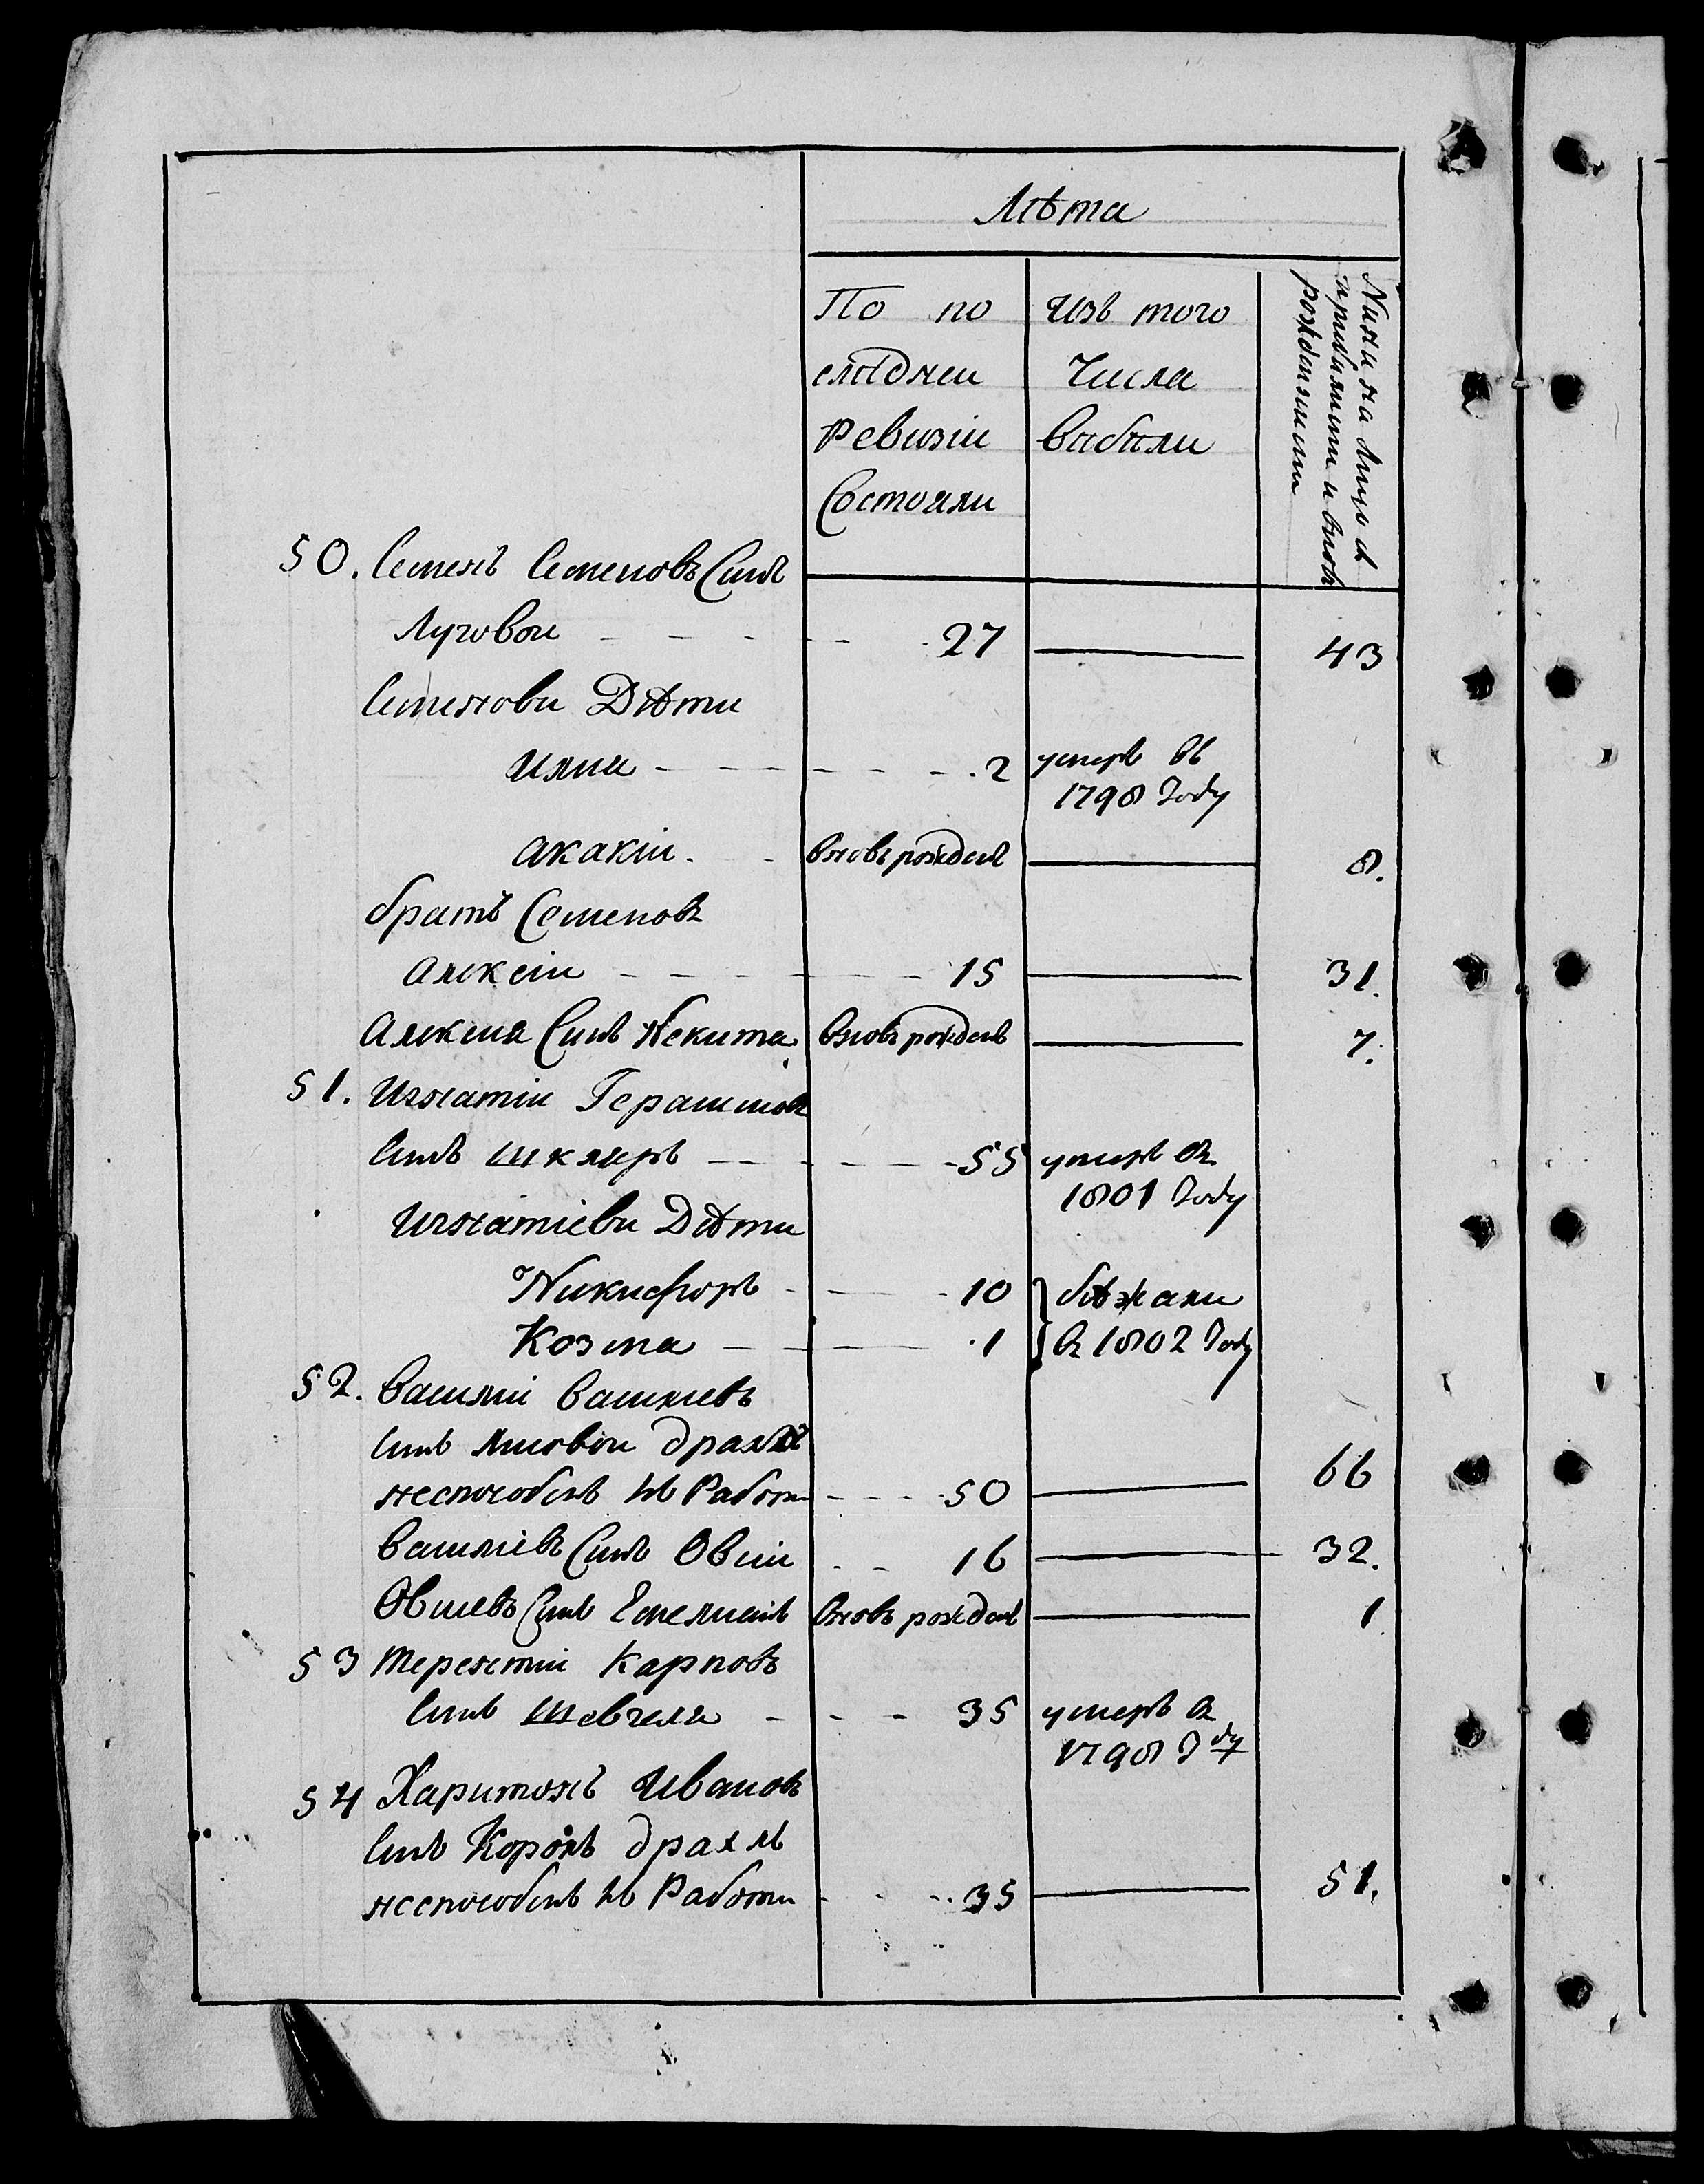 Лѣта
По по
слѣдней
Ревизіи
Состояли
Изъ того
Числа
выбыли
Нини на лицо съ
прибилими и вновь
рожденними
50. Семенъ Семеновъ Синъ
Луговои - - - - - 27 43
Семенови Дѣти
Илиа - - - - - - 2 умеръ въ
1798 Году
Акакіи. - вновь рожденъ 8.
братъ Семеновъ
Алексіи - - - - - 15 31.
Алексия Синъ Некита вновь рожденъ 7.
51. Игнатіи Герасимовъ
Синъ Шкляръ - - - - 55 умеръ въ
1801 Году
Игнатіеви Дѣти
Никифоръ - - - 10 бѣжали
Козма - - - 1 въ 1802 Году
52. Василіи Василіевъ
Синъ Лисовои драхлъ
неспособенъ къ Работи - - - 50 66
Василіевъ Синъ Овсіи - - 16 32.
Овсиевъ Синъ Емелианъ вновь рожденъ 1
53 Терентіи Карповъ
Синъ Шевчеля - - - 35 умеръ въ
1798 Году
54 Харитонъ Ивановъ
Синъ Король драхлъ
неспособенъ къ Работи - - - 35 51.